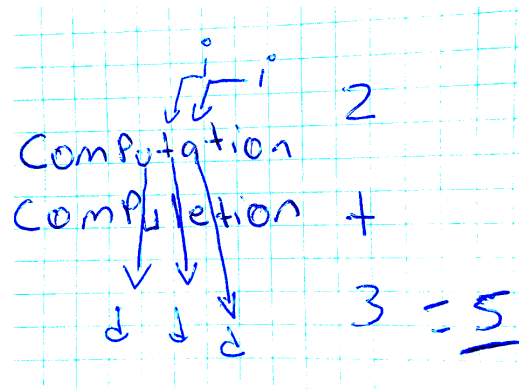 i
i
Computation 2
Completion +
d d d 3 = 5